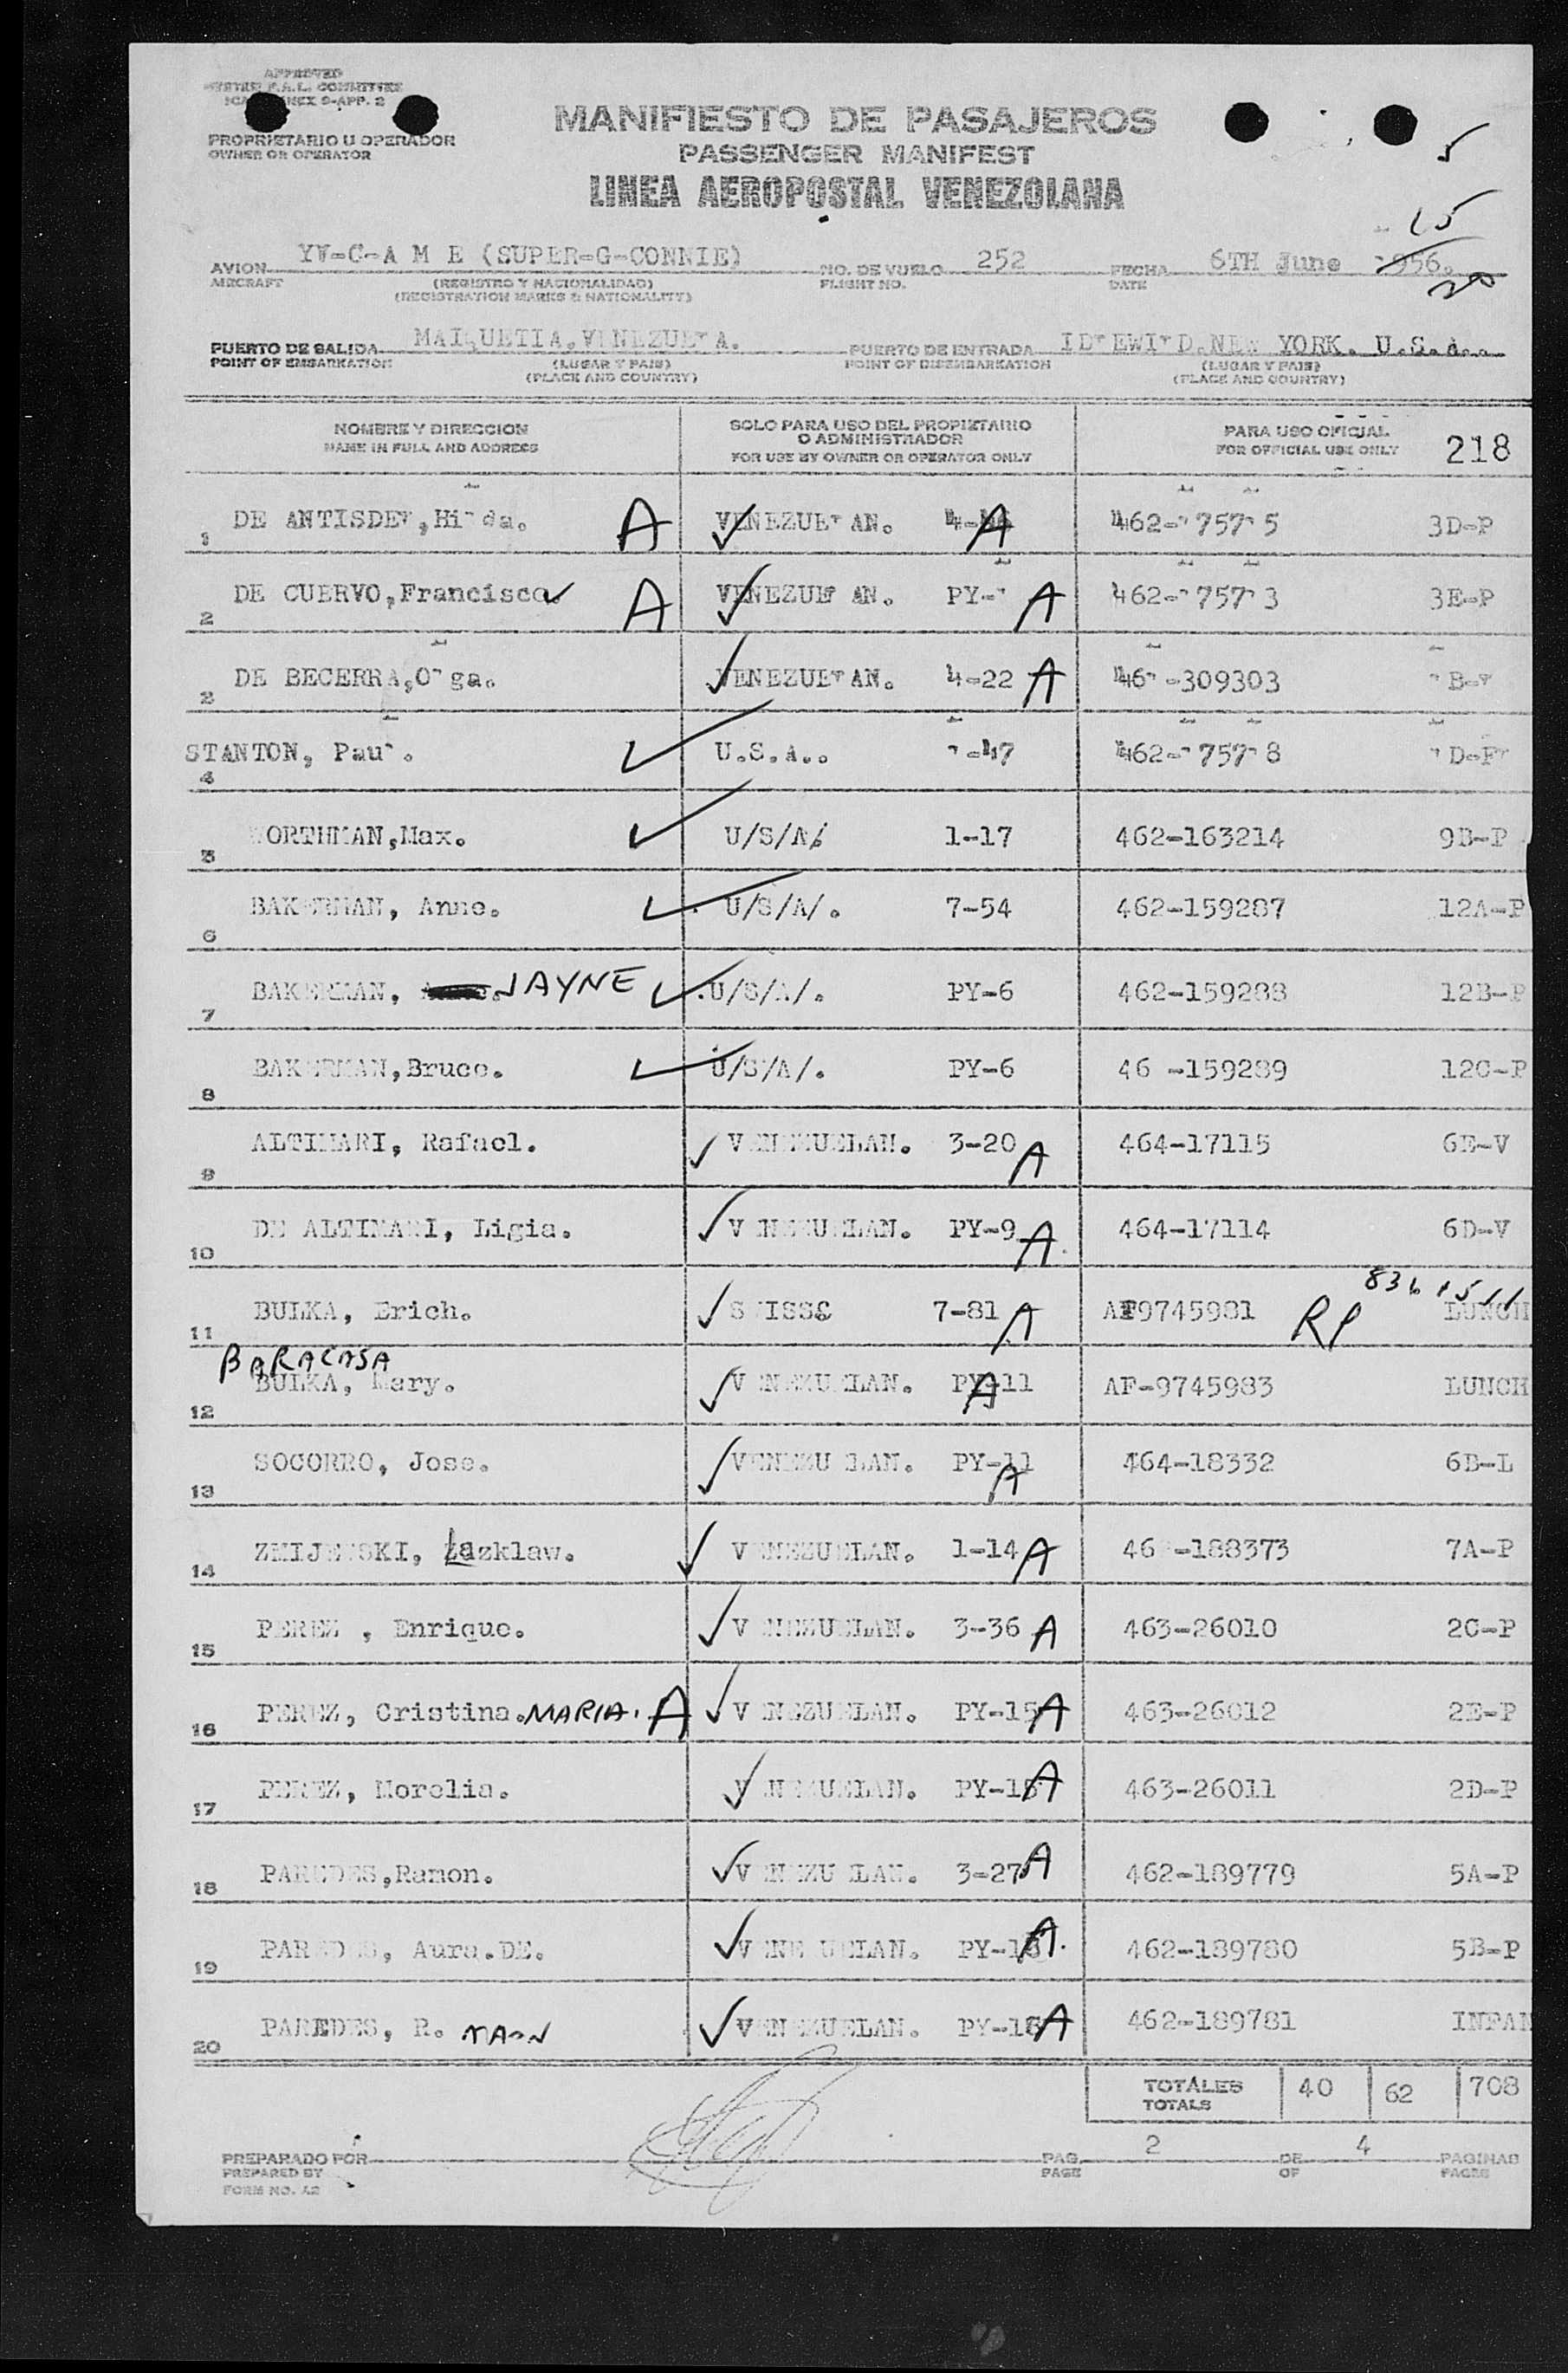 APPROVED
F.A.L. COMMITTEE
9-APP. 2
PROPRIETARIO U OPERADOR
OWNER OR OPERATOR
MANIFIESTO DE PASAJEROS
PASSENGER MANIFEST
LINEA AEROPOSTAL VENEZOLANA
5
15
20
AVION YV-C-A M E (SUPER-G-CONNIE) NO. DE VUELO 252 FECHA 6TH June 1956.
AIRCRAFT (REGISTRO Y NACIONALIDAD) FLIGHT NO. DATE
(REGISTRATION MARKS & NATIONALITY)
PUERTO DE SALIDA MAIQUETIA.VENEZUELA. PUERTO DE ENTRADA IDLEWILD.NEW YORK. U.S.A..
POINT OF EMBARKATION (LUGAR Y PAIS) POINT OF DISEMBARKATION (LUGAR Y PAIS)
(PLACE AND COUNTRY) (PLACE AND COUNTRY)
NOMBRE Y DIRECCION SOLO PARA USO DEL PROPIETARIO O ADMINISTRADOR PARA USO OFICIAL
NAME IN FULL AND ADDRESS FOR USE BY OWNER OR OPERATOR ONLY FOR OFFICIAL USE ONLY 218
1 DE ANTISDEL,Hilda. A VENEZUELAN. A 462-175715 3D-P
2 DE CUERVO,Francisca. A VENEZUELAN. PY-1 A 462-175713 3E-P
2 DE BECERRA,Olga. VENEZUELAN. 4-22 A 461-309303
4 STANTON, Paul. U.S.A.. 1-47 462-175718
5 WORTHMAN,Max. U/S/A/ 1-17 462-163214 9B-P
6 BAKERMAN, Anne. U/S/A/. 7-54 462-159287 12A-P
7 BAKERMAN, JAYNE U/S/A/. PY-6 462-159288 12B-P
8 BAKERMAN,Bruce. U/S/A/. PY-6 46 -159289 12C-P
9 ALTIMARI, Rafael. VENEZUELAN. 3-20 A 464-17115 6E-V
10 DE ALTIMARI, Ligia. VENEZUELAN. PY-9 A 464-17114 6D-V
11 BULKA, Erich. SWISSE 7-81 A AF9745981 RP LUNCH
BARACASA
12 BULKA, Mary. VENEZUELAN. PY-11 A AF-9745983 LUNCH
13 SOCORRO, Jose. VENEZUELAN. PY-11 A 464-18332 6B-L
14 ZMIJEWSKI, Lazklaw. VENEZUELAN. 1-14 A 46 -188373 7A-P
15 PEREZ , Enrique. VENEZUELAN. 3-36 A 463-26010 2C-P
16 PEREZ, Cristina. MARIA. A VENEZUELAN. PY-15 A 463-26012 2E-P
17 PEREZ, Morelia. VENEZUELAN. PY-15 A 463-26011 2D-P
18 PAREDES,Ramon. VENEZUELAN. 3-27 A 462-189779 5A-P
19 PAREDES, Aura.DE. VENEZUELAN. PY-18 A. 462-189780 5B-P
20 PAREDES, R. VENEZUELAN. PY-18 A 462-189781 INFAN
TOTALES 40 62 708
TOTALS
PREPARADO POR PAG. 2 DE 4 PAGINAS
PREPARED BY PAGE OF PAGES
FORM NO. A2